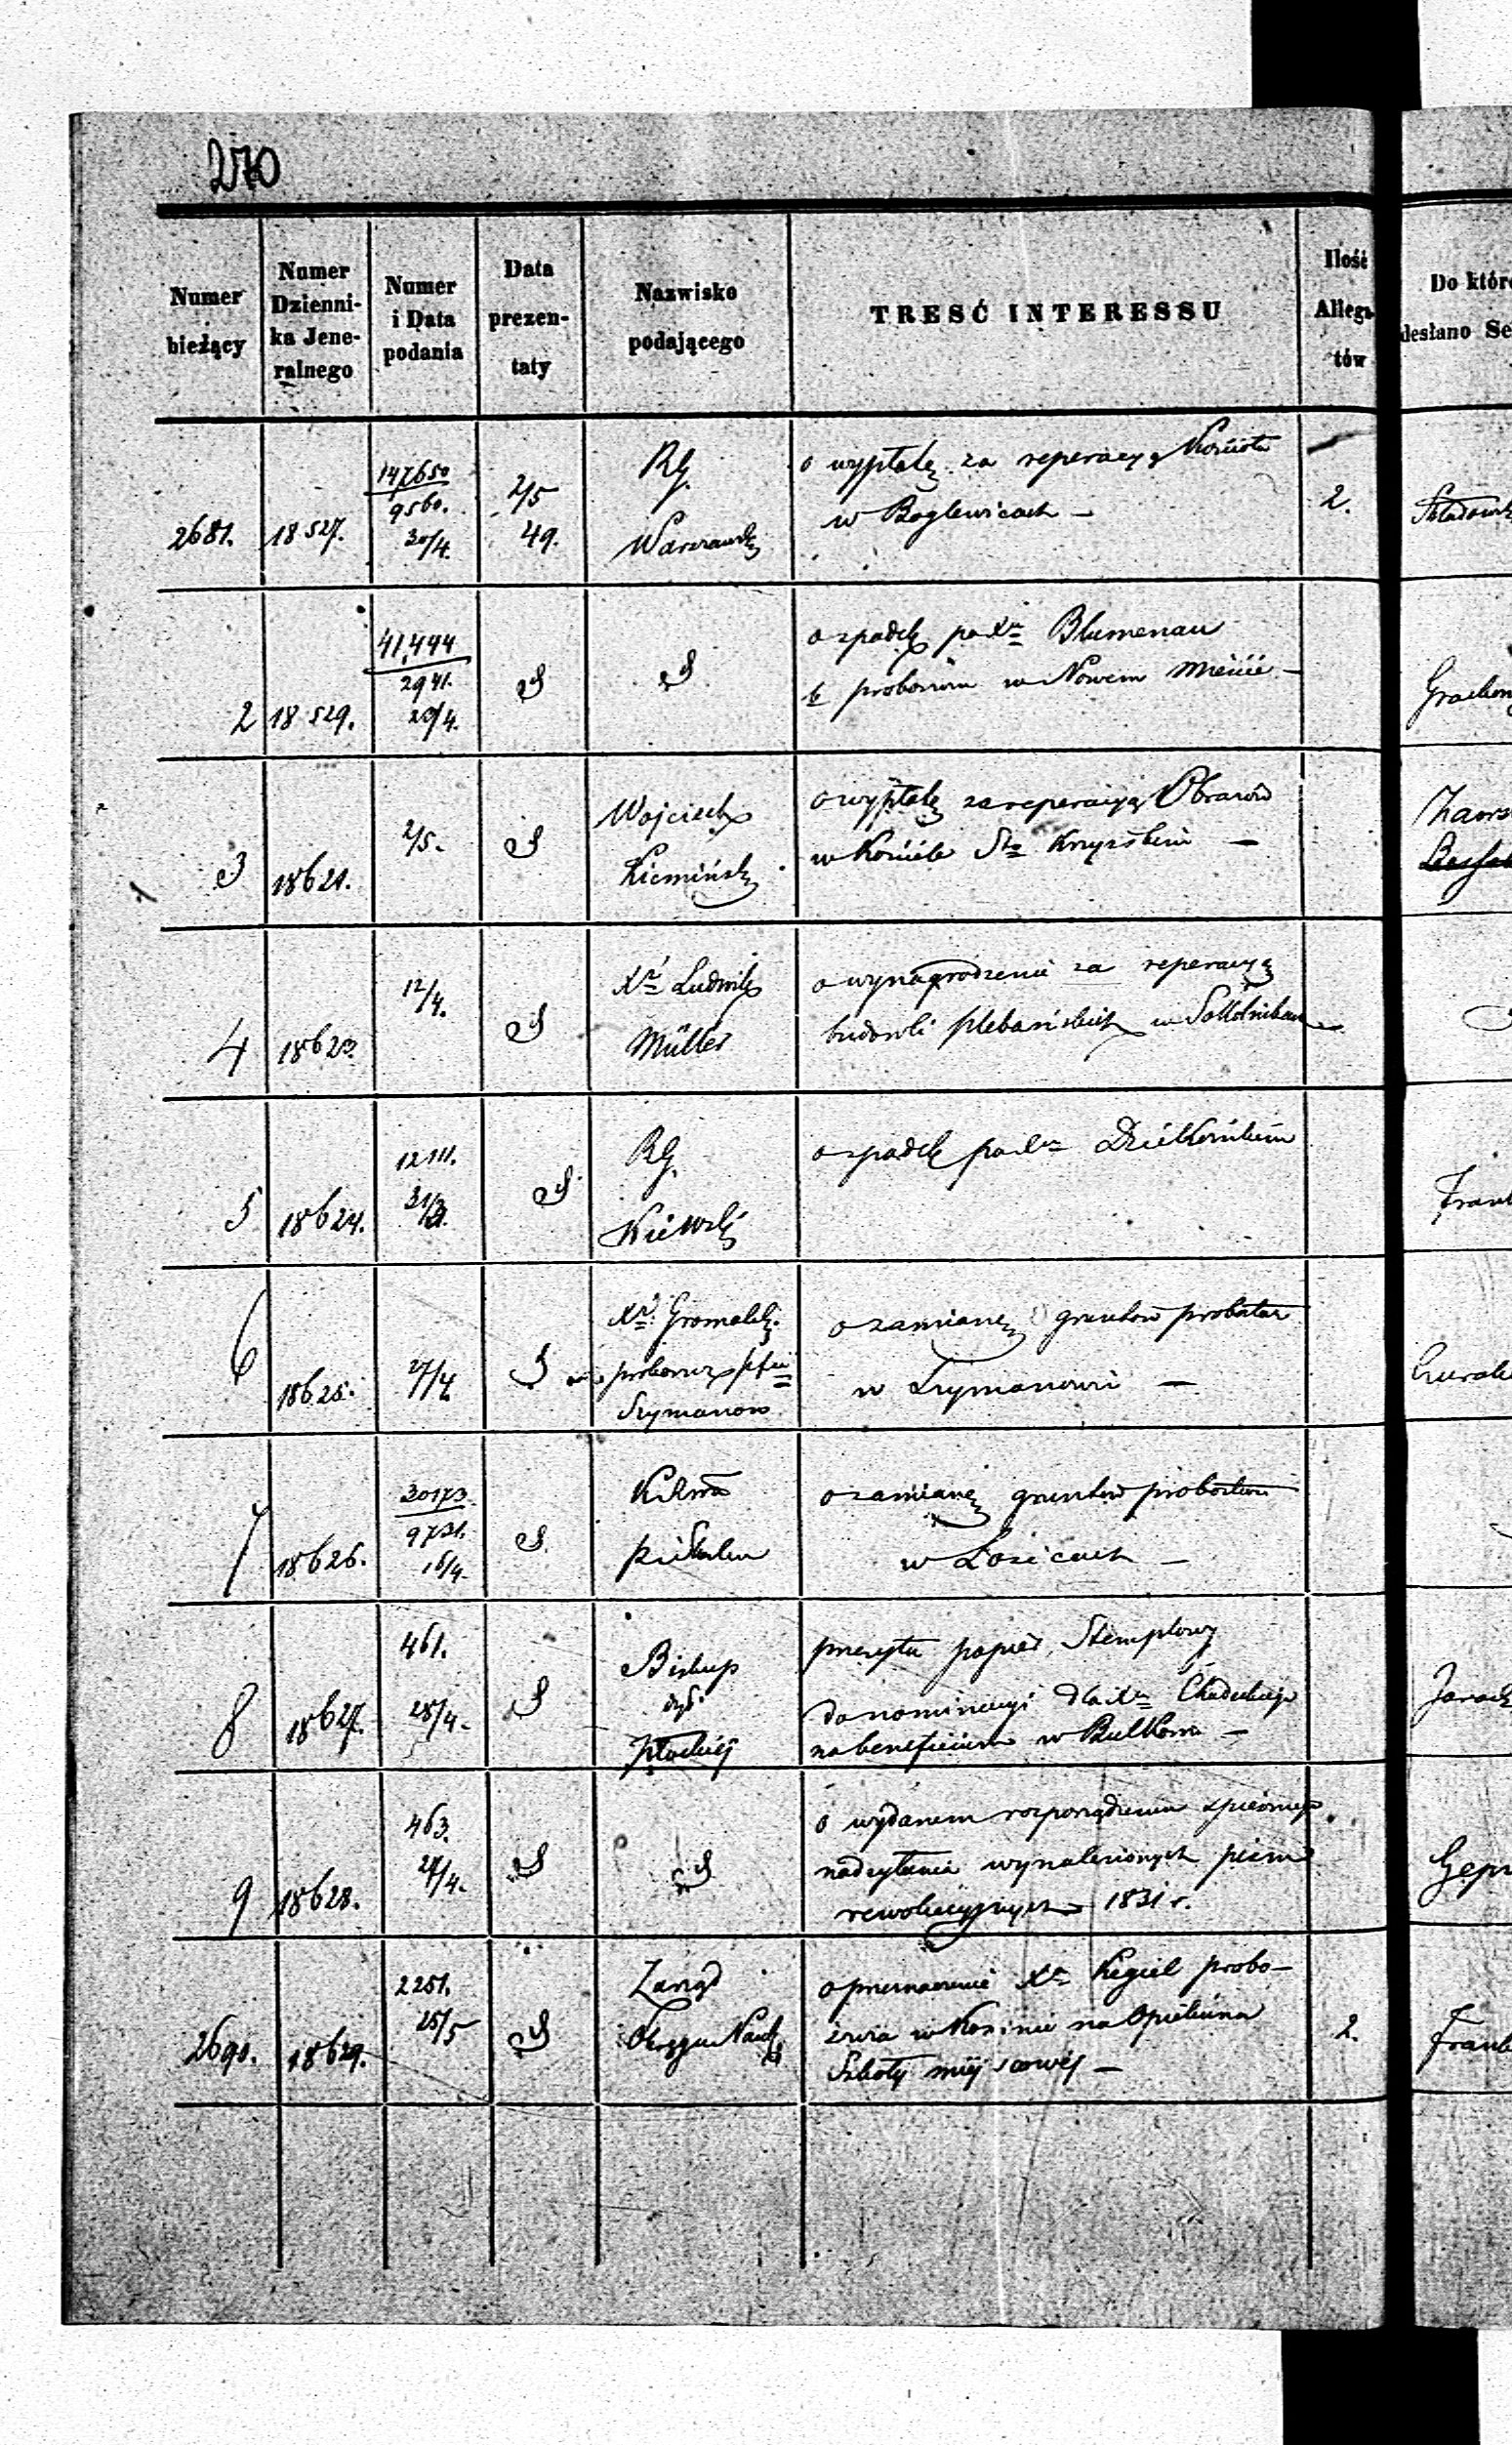 270
Numer bieżący
Numer Dzienni- ka Jene- ralnego
Numer i Data podania
Data prezen- taty
Nazwisko podającego
TRESĆ INTERESSU
Ilość Allega- tów
Do któr
desłano Se
2681. 18527. 147650 9560. 30/4. 2/5 49. RG. Warszawski
o wypłatę za reperacyą Kościoła
w Boglewicach – 2.
2 18529. 41,444 2941. 20/4. S S
o spadek po Xu Blumenau
b proboszczu w Nowem Mieście –
3 18621. 2/5. S Wojciech Kiemiński
o wypłatę za reperacyą Obrazów
w Kościele Sto Krzyzskim –
4 18623. 12/4. S Xdz Ludwik Müller
o wynagrodzenie za reperacyą
budowli plebańskich w Sokolnikach
5 18624. 12111. 31/3. S RG. Kielwski
o spadek po Xu
6 18625. 27/4 S Xdz Gromalski proboszcz pfii Szymanow
o zamianę gruntów probostwa
w Szymanowi –
7 18626. 30173. 9731. 16/4. S.
o zamianę gruntów probostwa
w Łosicach –
8 18627. 461. 28/4. S Biskup dyi Płockiej
przesyła papier Stemplowy
do nominacyi dla Xa
na beneficium w Bulkowie –
9 18628. 463. 27/4. S S
o wydanem rozporządzeniu
nadsyłania wynalezionych pism
rewolucyjnych 1831 r.
2690. 18629. 2251. 25/5 S Zarząd Okręgu Nauk
o przeznaczenie Xa Kegiel probo-
szcza w Koninie na Opiekuna
Szkoły miejscowej – 2.